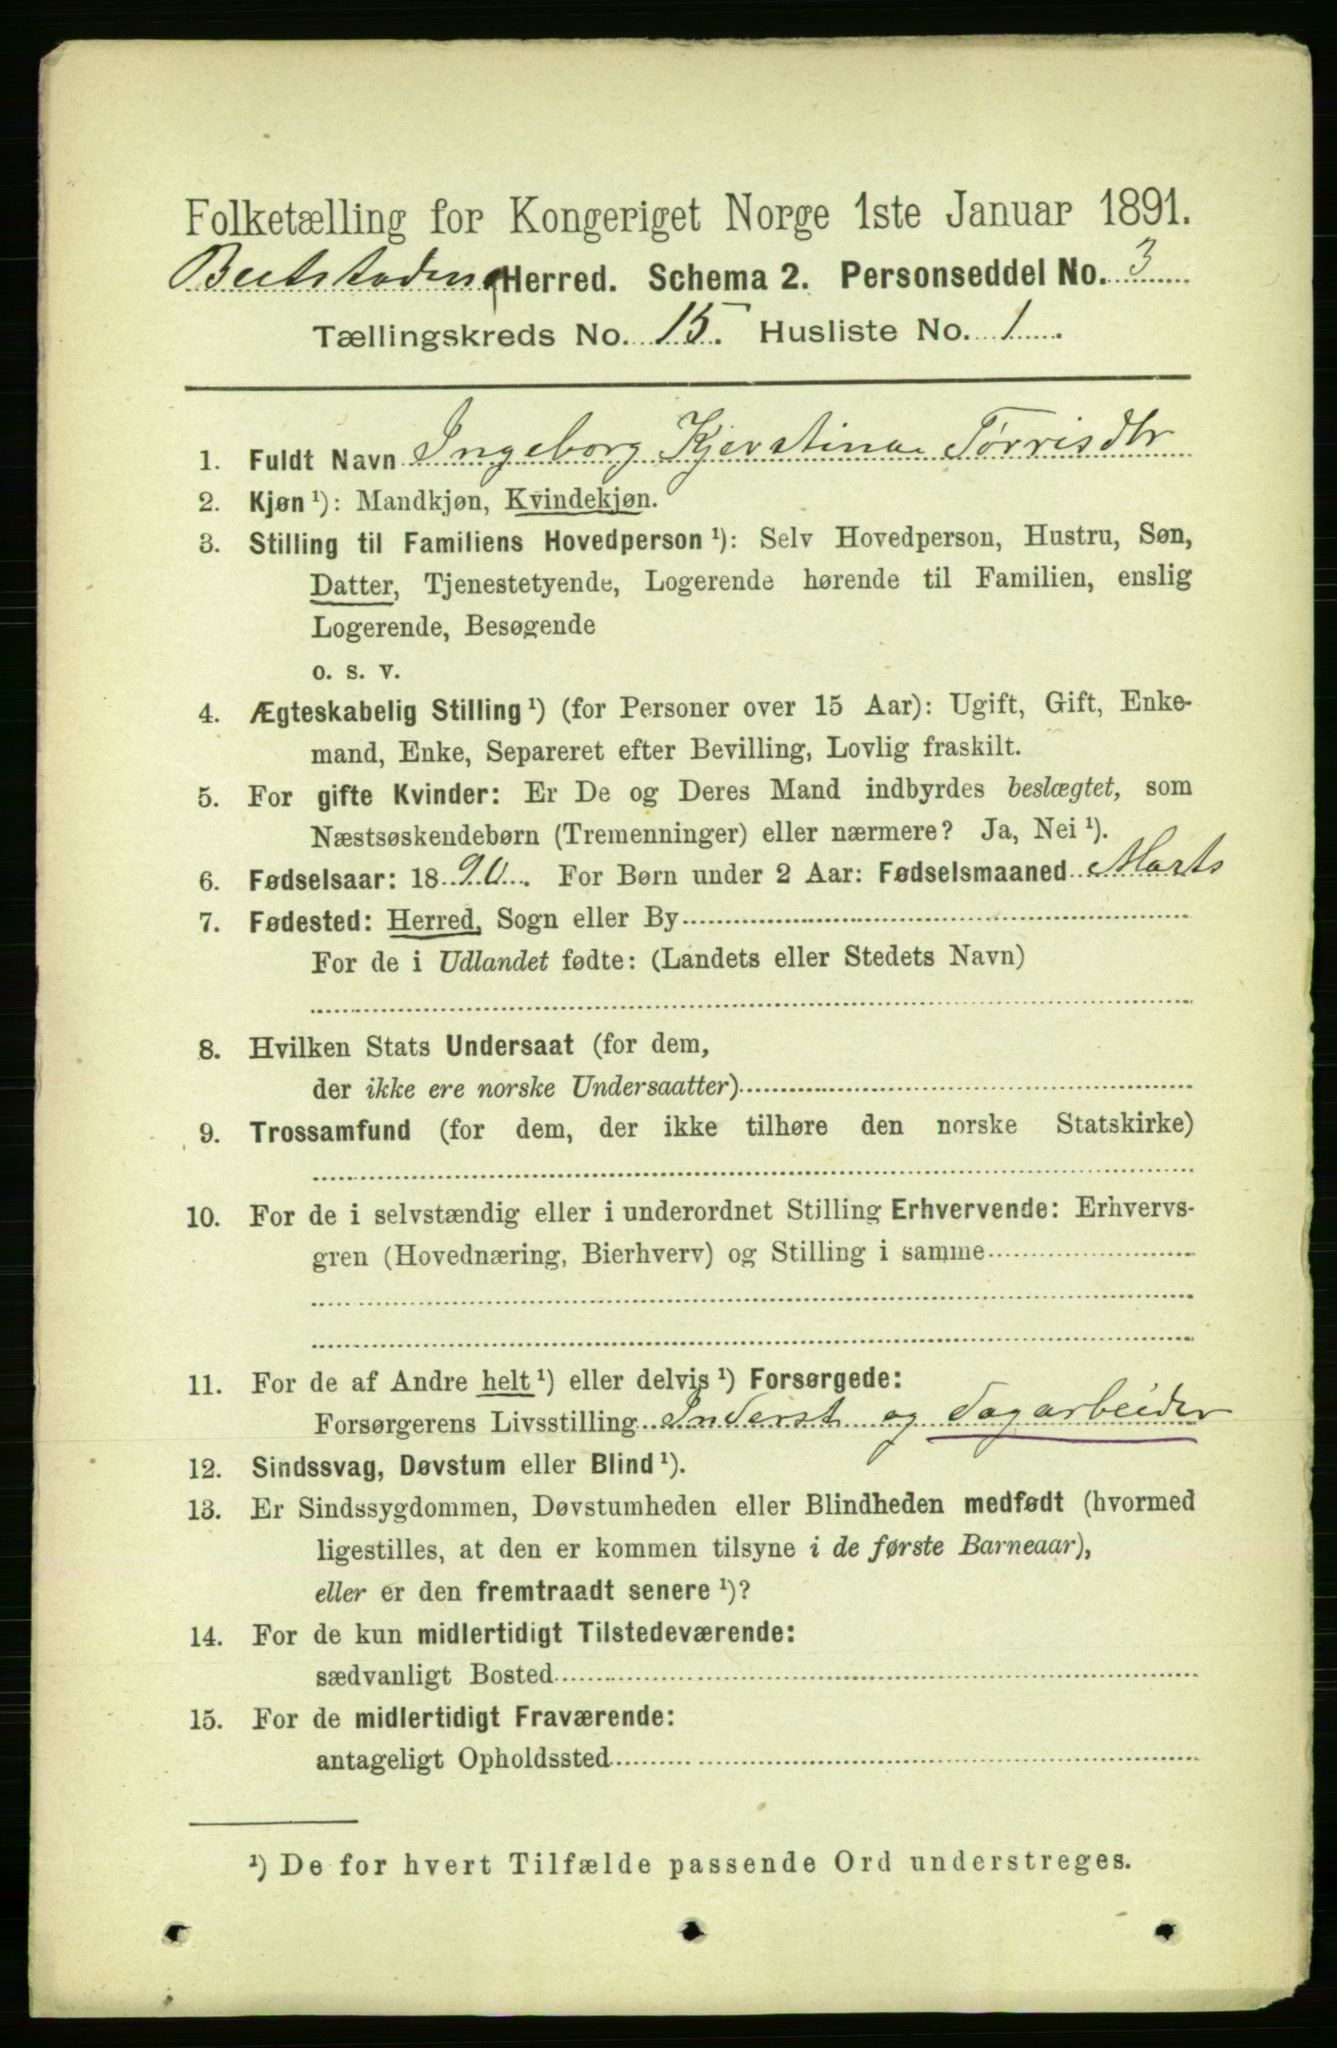 Folketælling for Kongeriget Norge 1ste Januar 1891.
Beitstadens Herred. Schema 2. Personseddel No. 3
Tællingskreds No. 15. Husliste No. 1.
1. Fuldt Navn Ingeborg Kjerstina Tørrisdtr
2. Kjøn ¹): Mandkjøn, Kvindekjøn.
3. Stilling til Familiens Hovedperson ¹): Selv Hovedperson, Hustru, Søn,
Datter, Tjenestetyende, Logerende hørende til Familien, enslig
Logerende, Besøgende
o. s. v.
4. Ægteskabelig Stilling ¹) (for Personer over 15 Aar): Ugift, Gift, Enke-
mand, Enke, Separeret efter Bevilling, Lovlig fraskilt.
5. For gifte Kvinder: Er De og Deres Mand indbyrdes beslægtet, som
Næstsøskendebørn (Tremenninger) eller nærmere? Ja, Nei ¹).
6. Fødselsaar: 1890. For Børn under 2 Aar: Fødselsmaaned Marts
7. Fødested: Herred, Sogn eller By
For de i Udlandet fødte: (Landets eller Stedets Navn)
8. Hvilken Stats Undersaat (for dem,
der ikke ere norske Undersaatter)
9. Trossamfund (for dem, der ikke tilhøre den norske Statskirke)
10. For de i selvstændig eller i underordnet Stilling Erhvervende: Erhvervs-
gren (Hovednæring, Bierhverv) og Stilling i samme
11. For de af Andre helt ¹) eller delvis ¹) Forsørgede:
Forsørgerens Livsstilling Inderst og Dagarbeider
12. Sindssvag, Døvstum eller Blind ¹).
13. Er Sindssygdommen, Døvstumheden eller Blindheden medfødt (hvormed
ligestilles, at den er kommen tilsyne i de første Barneaar),
eller er den fremtraadt senere ¹)?
14. For de kun midlertidigt Tilstedeværende:
sædvanligt Bosted
15. For de midlertidigt Fraværende:
antageligt Opholdssted
¹) De for hvert Tilfælde passende Ord understreges.